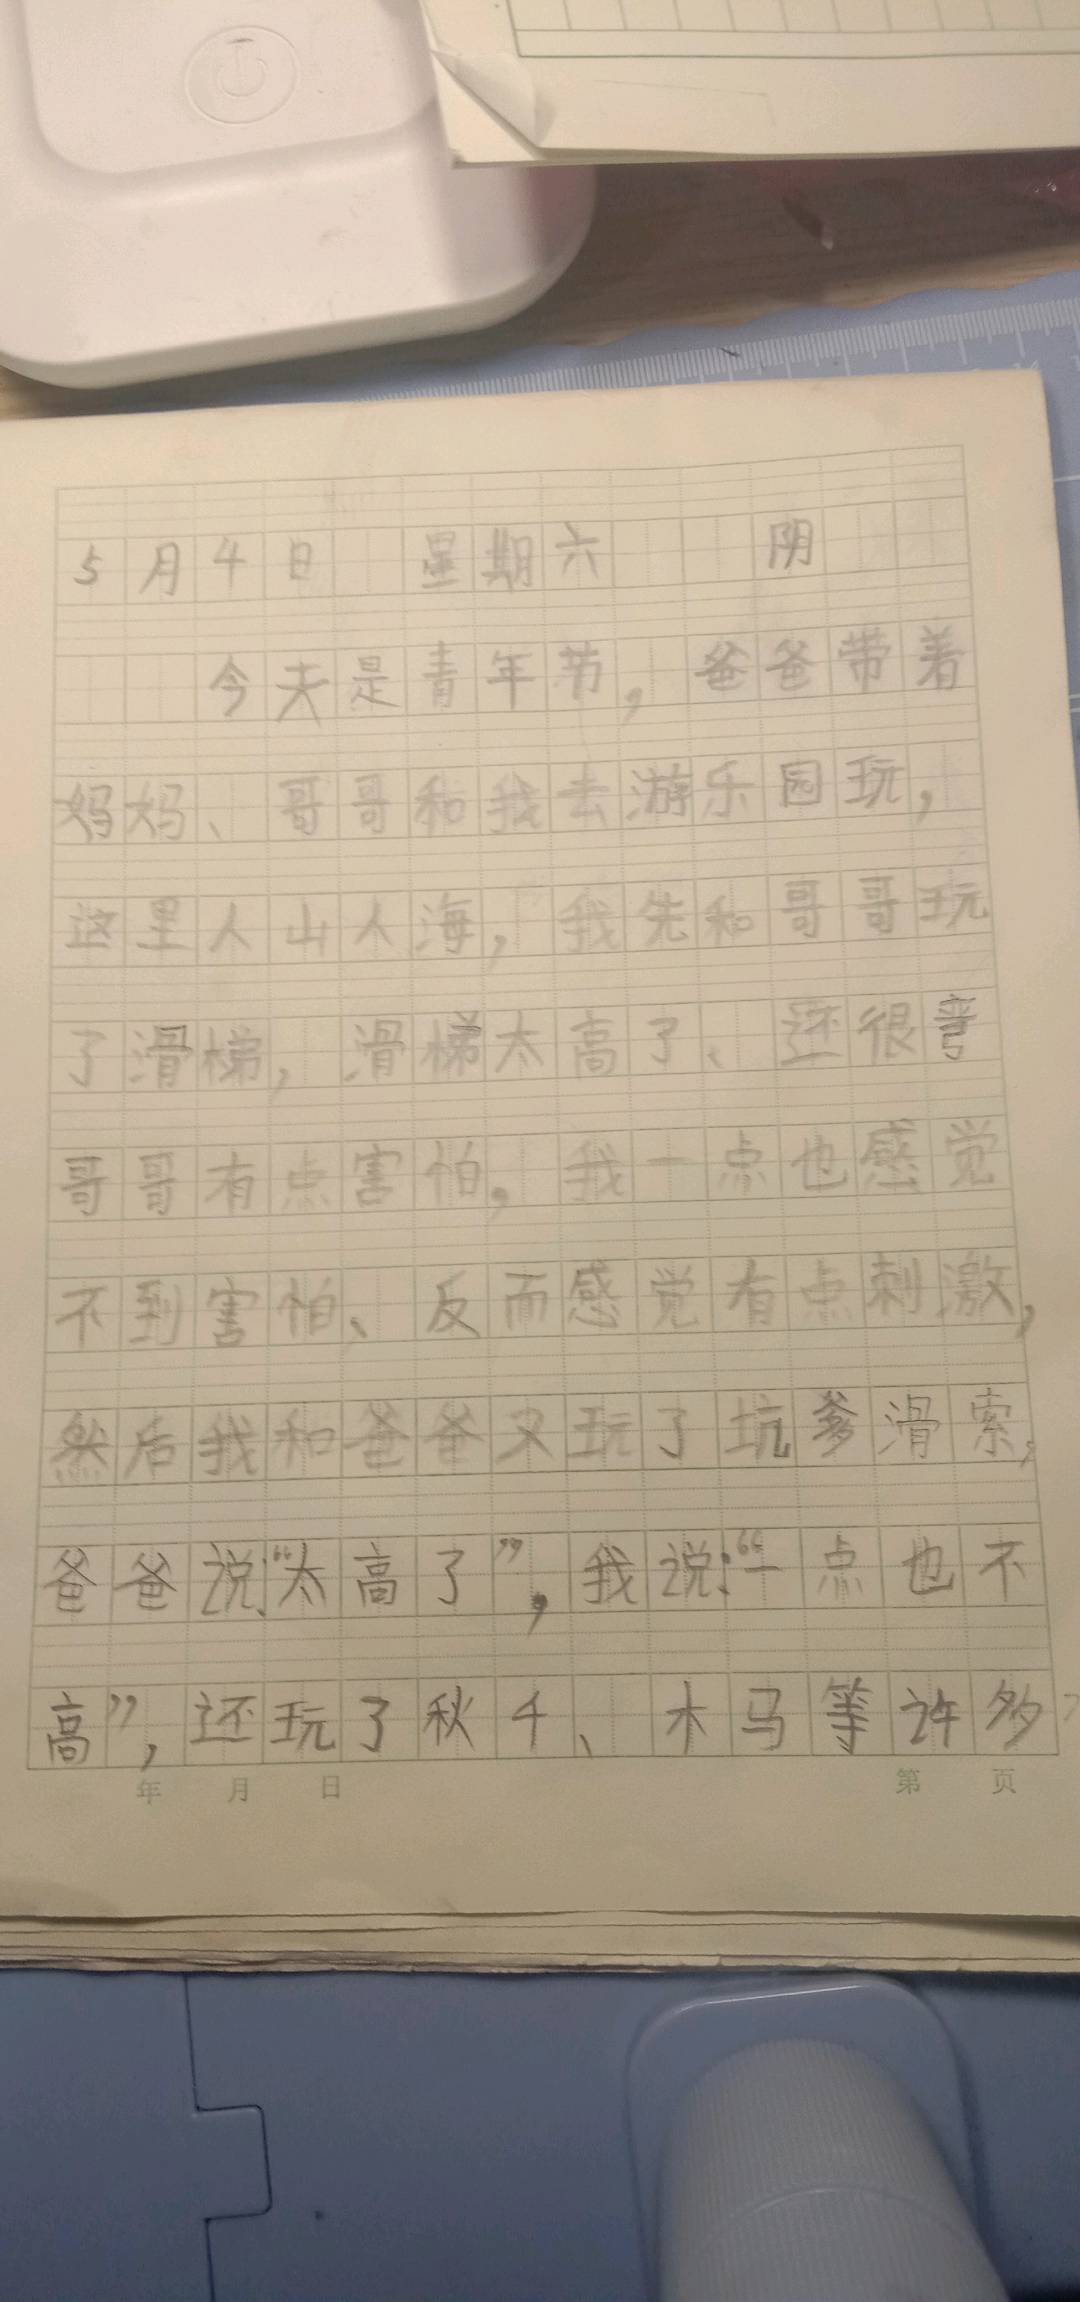 5月4日 星期六 阴
今天是青年节,爸爸带着
妈妈、哥哥和我去游乐园玩,
这里人山人海,我先和哥哥玩
了滑梯,滑梯太高了、还很弯
哥哥有点害怕,我一点也感觉
不到害怕、反而感觉有点刺激,
然后我和爸爸又玩了坑爹滑索,
爸爸说:“太高了”,我说:“一点也不
高”,还玩了秋千、木马等许多,
年 月 日 第 页